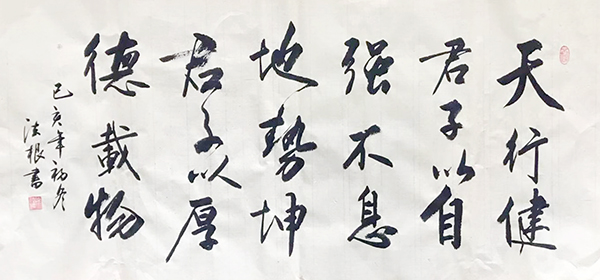 天行健
君子以自
强不息
地势坤
君子以厚
德載物
己亥年初冬
法根書